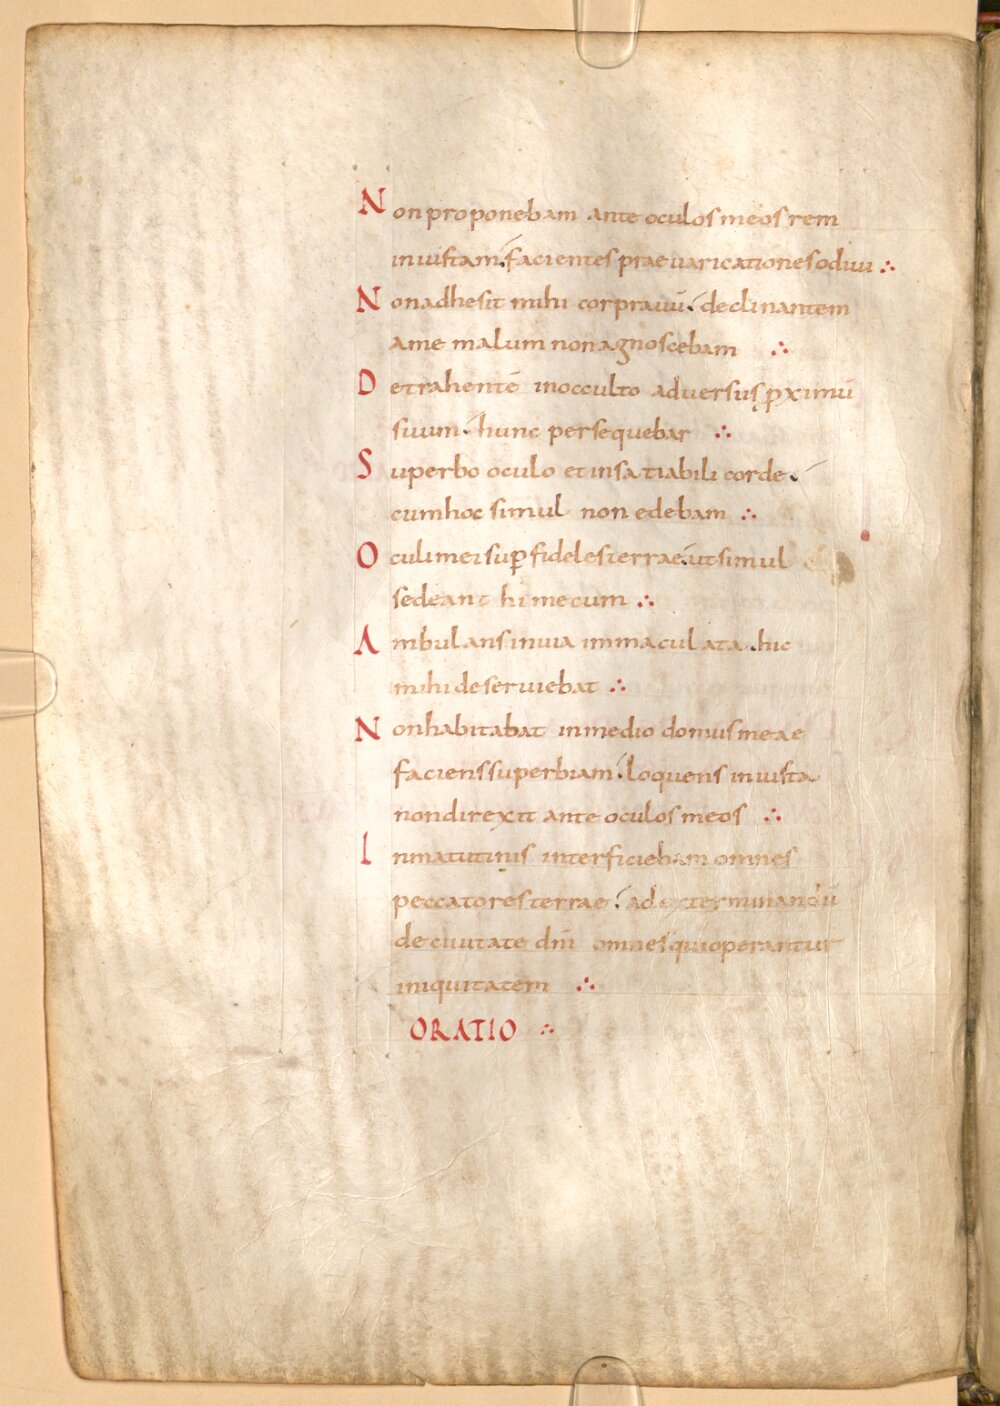 Non proponebam ante oculos meos rem
iniustam. facientes praeuaricationes odiui ∴
Non adhesit mihi cor prauū. declinantem
a me malum non agnoscebam ∴
Detrahentē in occulto aduersus p̱ximū
suum. hunc persequebar ∴
Superbo oculo et insatiabili corde.
cum hoc simul non edebam ∴
Oculi mei sup̱ fideles terrae. ut simul
sedeant hi mecum ∴
Ambulans in uia immaculata. hic
mihi deseruiebat ∴
Non habitabat in medio domus meae
faciens superbiam. loquens iniusta
non direxit ante oculos meos ∴
In matutinis interficiebam omnes
peccatores terrae. ad exterminandū
de ciuitate dn̄i omnes qui operantur
iniquitatem ∴
ORATIO ∴